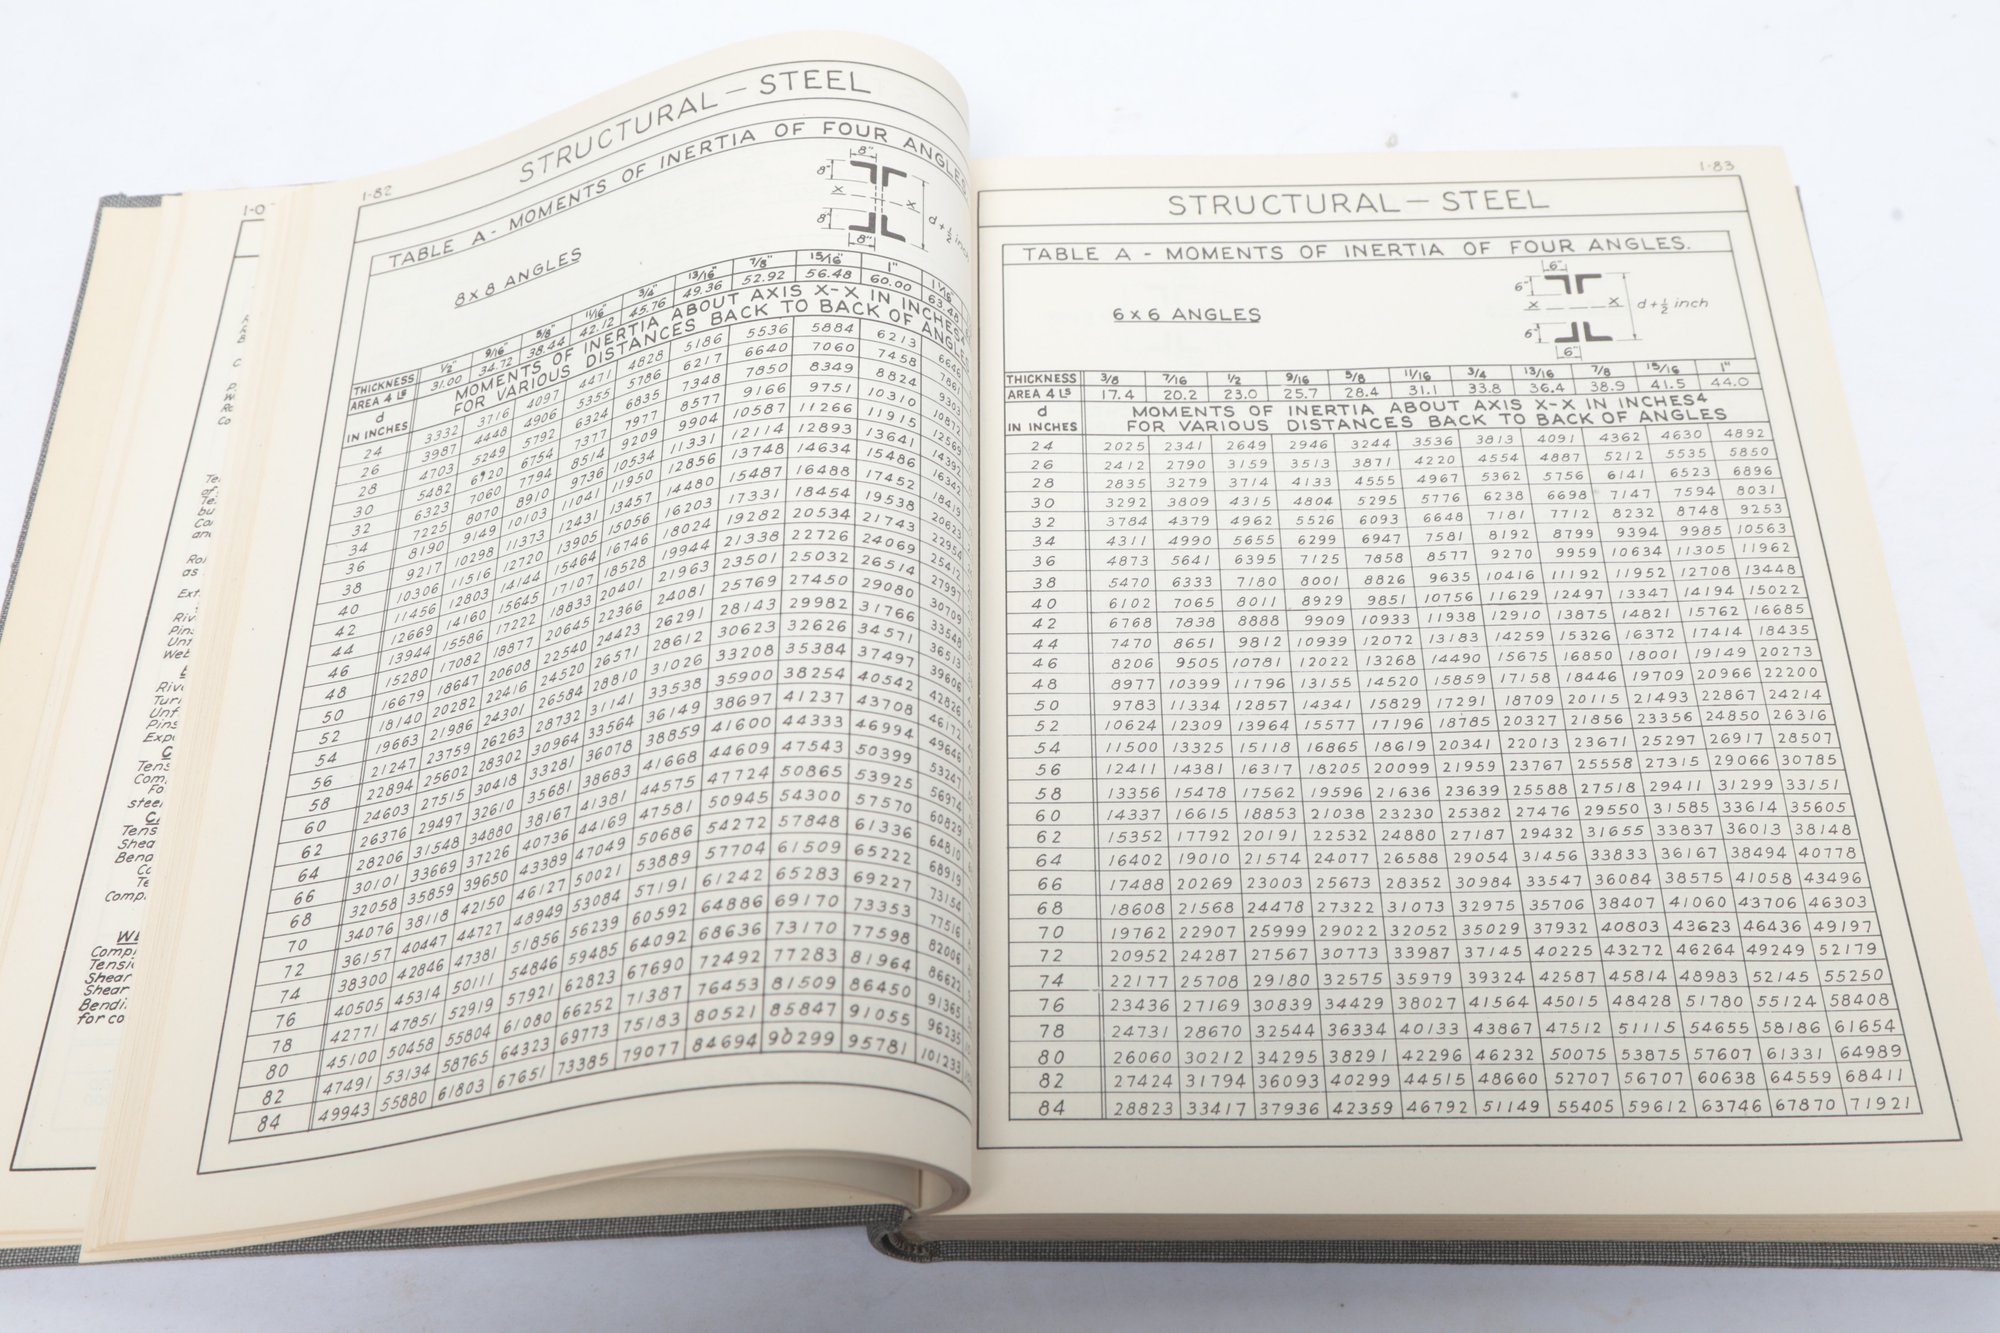 I-82
STRUCTURAL — STEEL
TABLE A - MOMENTS OF INERTIA OF FOUR ANGLES
8 x 8 ANGLES
8" 8" X X 8" 8" d + ½ inch
THICKNESS 1/2" 9/16" 5/8" 11/16" 3/4" 13/16" 7/8" 15/16" 1" 1 1/16"
AREA 4 Ls 31.00 34.72 38.44 42.12 45.76 49.36 52.92 56.48 60.00 63.48
d IN INCHES
MOMENTS OF INERTIA ABOUT AXIS X-X IN INCHES4
FOR VARIOUS DISTANCES BACK TO BACK OF ANGLES
24 3332 3716 4097 4471 4828 5186 5536 5884 6213
26 3987 4448 4906 5355 5786 6217 6640 7060 7458 7861
28 4703 5249 5792 6324 6835 7348 7850 8349 8824 9303
30 5482 6120 6754 7377 7977 8577 9166 9751 10310 10872
32 6323 7060 7794 8514 9209 9904 10587 11266 11915 12569
34 7225 8070 8910 9736 10534 11331 12114 12893 13641 14392
36 8190 9149 10103 11041 11950 12856 13748 14634 15486 16342
38 9217 10298 11373 12431 13457 14480 15487 16488 17452 18419
40 10306 11516 12720 13905 15056 16203 17331 18454 19538 20623
42 11456 12803 14144 15464 16746 18024 19282 20534 21743 22954
44 12669 14160 15645 17107 18528 19944 21338 22726 24069 25412
46 13944 15586 17222 18833 20401 21963 23501 25032 26514 27997
48 15280 17082 18877 20645 22366 24081 25769 27450 29080 30709
50 16679 18647 20608 22540 24423 26291 28143 29982 31766 33548
52 18140 20282 22416 24520 26571 28612 30623 32626 34571 36513
54 19663 21986 24301 26584 28810 31026 33208 35384 37497 39606
56 21247 23759 26263 28732 31141 33538 35900 38254 40542 42826
58 22894 25602 28302 30964 33564 36149 38697 41237 43708 46172
60 24603 27515 30418 33281 36078 38859 41600 44333 46994 49646
62 26376 29497 32610 35681 38683 41668 44609 47543 50399 53247
64 28206 31548 34880 38167 41381 44575 47724 50865 53925 56974
66 30101 33669 37226 40736 44169 47581 50945 54300 57570 60829
68 32058 35859 39650 43389 47049 50686 54272 57848 61336 64810
70 34076 38118 42150 46127 50021 53889 57704 61509 65222 68919
72 36157 40447 44727 48949 53084 57191 61242 65283 69227 73154
74 38300 42846 47381 51856 56239 60592 64886 69170 73353 77516
76 40505 45314 50111 54846 59485 64092 68636 73170 77598 82006
78 42771 47851 52919 57921 62823 67690 72492 77283 81964 86622
80 45100 50458 55804 61080 66252 71387 76453 81509 86450 91365
82 47491 53134 58765 64323 69773 75183 80521 85847 91055 96235
84 49943 55880 61803 67651 73385 79077 84694 90299 95781 101233
I-83
STRUCTURAL — STEEL
TABLE A - MOMENTS OF INERTIA OF FOUR ANGLES.
6 x 6 ANGLES
6" 6" X X 6" 6" d + ½ inch
THICKNESS 3/8 7/16 1/2 9/16 5/8 11/16 3/4 13/16 7/8 15/16 1"
AREA 4 Ls 17.4 20.2 23.0 25.7 28.4 31.1 33.8 36.4 38.9 41.5 44.0
d IN INCHES
MOMENTS OF INERTIA ABOUT AXIS X-X IN INCHES4
FOR VARIOUS DISTANCES BACK TO BACK OF ANGLES
24 2025 2341 2649 2946 3244 3536 3813 4091 4362 4630 4892
26 2412 2790 3159 3513 3871 4220 4554 4887 5212 5535 5850
28 2835 3279 3714 4133 4555 4967 5362 5756 6141 6523 6896
30 3292 3809 4315 4804 5295 5776 6238 6698 7147 7594 8031
32 3784 4379 4962 5526 6093 6648 7181 7712 8232 8748 9253
34 4311 4990 5655 6299 6947 7581 8192 8799 9394 9985 10563
36 4873 5641 6395 7125 7858 8577 9270 9959 10634 11305 11962
38 5470 6333 7180 8001 8826 9635 10416 11192 11952 12708 13448
40 6102 7065 8011 8929 9851 10756 11629 12497 13347 14194 15022
42 6768 7838 8888 9909 10933 11938 12910 13875 14821 15762 16685
44 7470 8651 9812 10939 12072 13183 14259 15326 16372 17414 18435
46 8206 9505 10781 12022 13268 14490 15675 16850 18001 19149 20273
48 8977 10399 11796 13155 14520 15859 17158 18446 19709 20966 22200
50 9783 11334 12857 14341 15829 17291 18709 20115 21493 22867 24214
52 10624 12309 13964 15577 17196 18785 20327 21856 23356 24850 26316
54 11500 13325 15118 16865 18619 20341 22013 23671 25297 26917 28507
56 12411 14381 16317 18205 20099 21959 23767 25558 27315 29066 30785
58 13356 15478 17562 19596 21636 23639 25588 27518 29411 31299 33151
60 14337 16615 18853 21038 23230 25382 27476 29550 31585 33614 35605
62 15352 17792 20191 22532 24880 27187 29432 31655 33837 36013 38148
64 16402 19010 21574 24077 26588 29054 31456 33833 36167 38494 40778
66 17488 20269 23003 25673 28352 30984 33547 36084 38575 41058 43496
68 18608 21568 24478 27322 31073 32975 35706 38407 41060 43706 46303
70 19762 22907 25999 29022 32052 35029 37932 40803 43623 46436 49197
72 20952 24287 27567 30773 33987 37145 40225 43272 46264 49249 52179
74 22177 25708 29180 32575 35979 39324 42587 45814 48983 52145 55250
76 23436 27169 30839 34429 38027 41564 45015 48428 51780 55124 58408
78 24731 28670 32544 36334 40133 43867 47512 51115 54655 58186 61654
80 26060 30212 34295 38291 42296 46232 50075 53875 57607 61331 64989
82 27424 31794 36093 40299 44515 48660 52707 56707 60638 64559 68411
84 28823 33417 37936 42359 46792 51149 55405 59612 63746 67870 71921